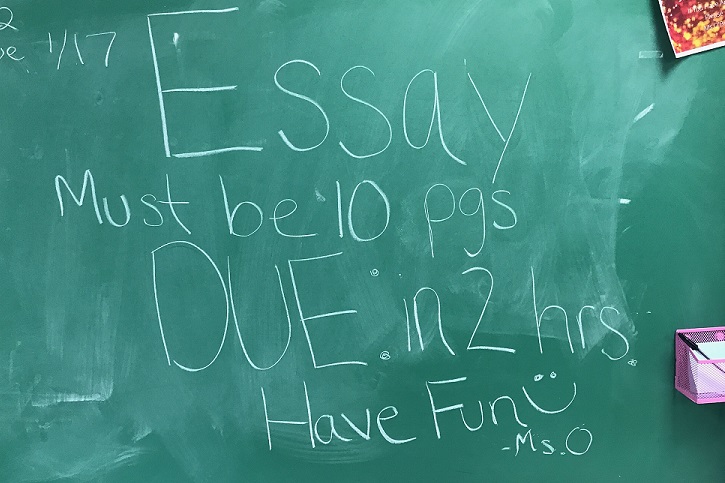 1/17
Essay
Must be 10 pgs
DUE in 2 hrs.
Have Fun
-Ms.O